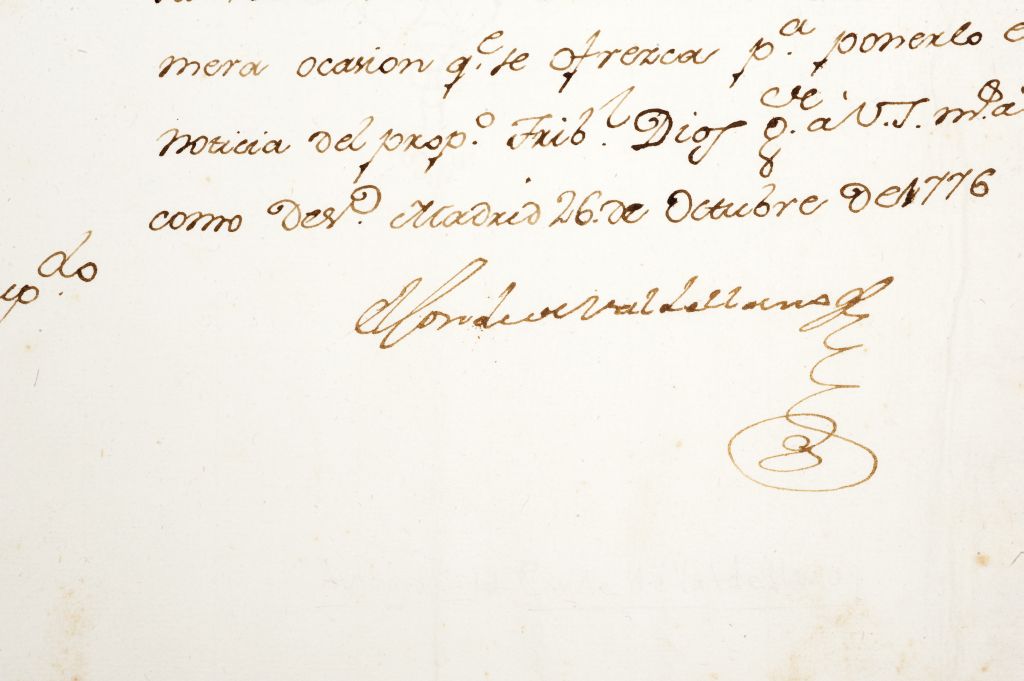 mera ocasion q.e se ofrezca p.a ponerlo e
noticia del prop.o Trib.l Dios g.ue à V.S. m.s a
como des.o Madrid 26. de Octubre de 1776
do
El Conde de Valdellano